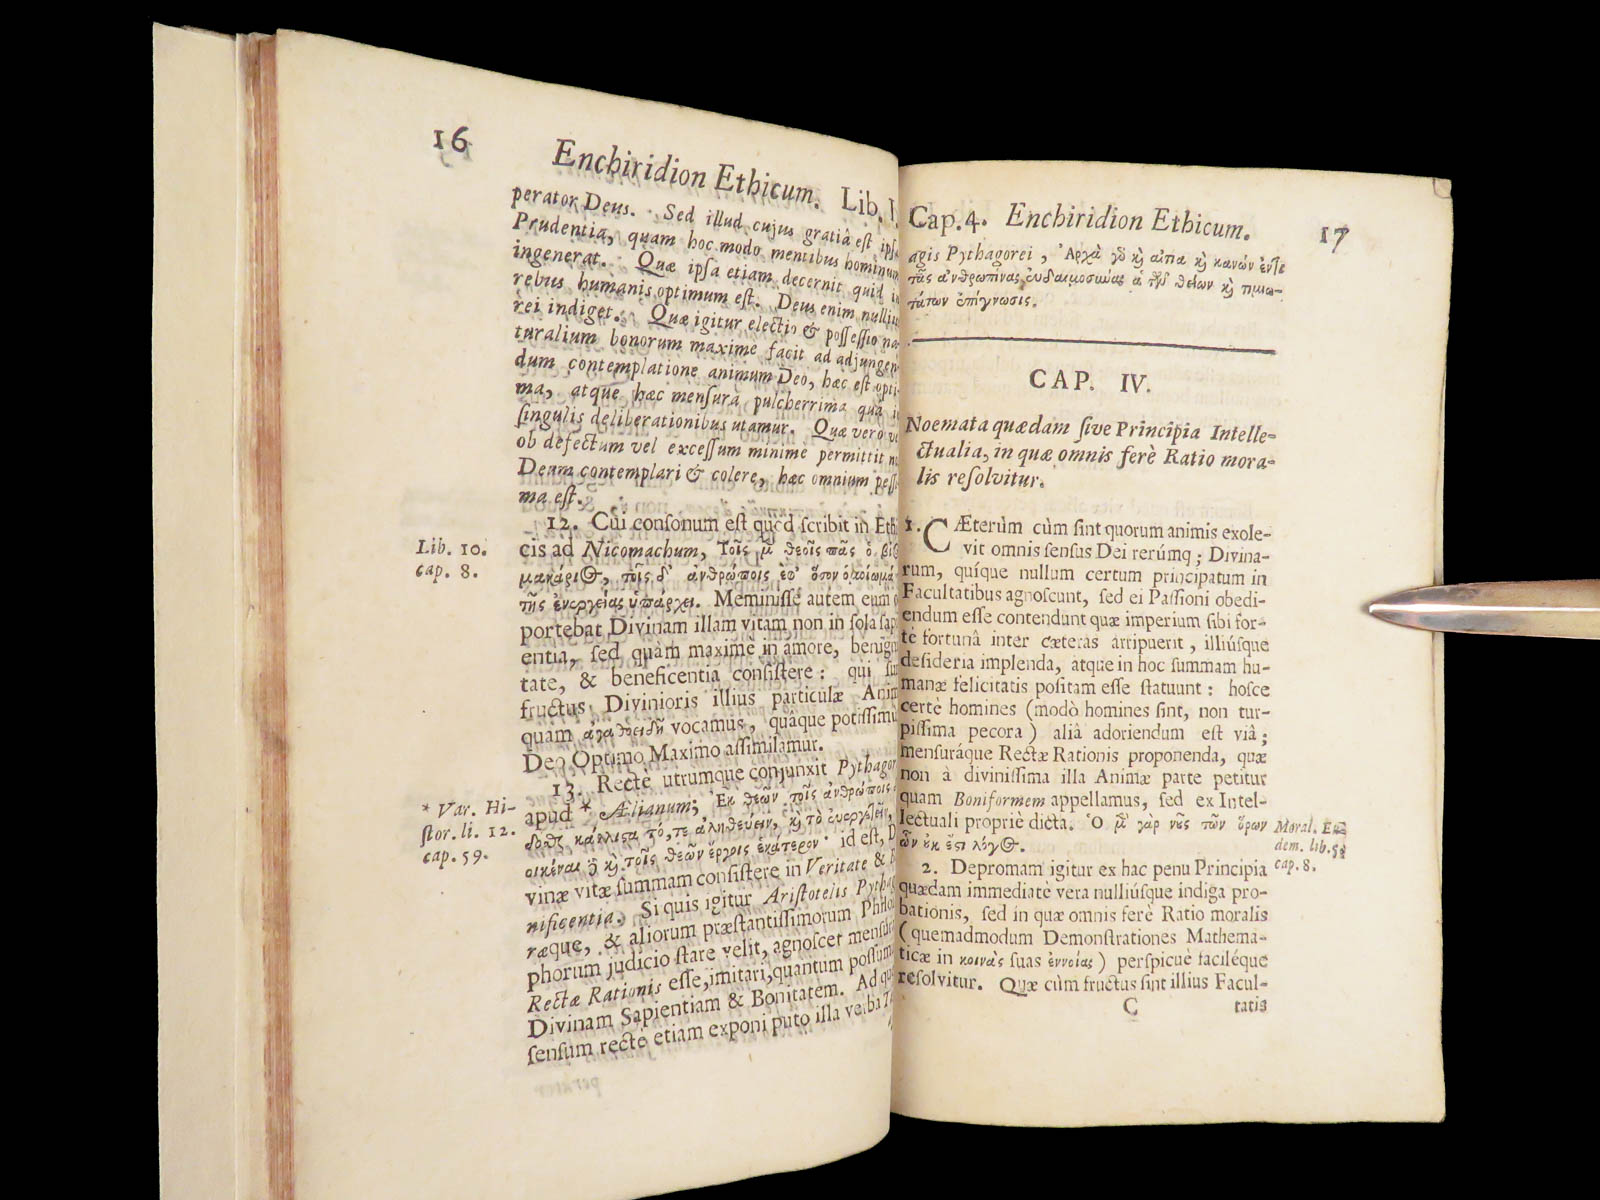 16
Enchiridion Ethicum. Lib. I.
perator Deus. Sed illud cujus gratiâ est ipsa
Prudentia, quam hoc modo mentibus hominum
ingenerat. Quæ ipsa etiam decernit quid in
rebus humanis optimum est. Deus enim nullius
rei indiget. Quæ igitur electio & possessio na-
turalium bonorum maxime facit ad adjungen-
dum contemplatione animum Deo, hæc est opti-
ma, atque hæc mensura pulcherrima quâ in
singulis deliberationibus utamur. Quæ vero
ob defectum vel excessum minime permittit
Deum contemplari & colere, hæc omnium pessi-
ma est.
12. Cui consonum est quod scribit in Ethi-
Lib. 10.
cap. 8.
cis ad Nicomachum, Τοῖς μ̃ θεοῖς πᾶς ὁ βί⊙
μακάρι⊙, τοῖς δ' ἀνθρώποις ἐφ' ὅσον ὁμοίωμά
τῆς ἐνεργείας ὑπάρχει. Meminisse autem eum
portebat Divinam illam vitam non in sola sapi-
entia, sed quàm maximè in amore, benigni-
tate, & beneficentia consistere: qui sunt
fructus Divinioris illius particulæ Animæ
quam ἀγαθοειδῆ vocamus, quâque potissimùm
Deo Optimo Maximo assimilamur.
13. Rectè utrumque conjunxit Pythagoras
* Var. Hi-
stor. li. 12.
cap. 59.
apud * Ælianum; Ἐκ θεῶν τοῖς ἀνθρώποις
κάλλιστα τό, τε ἀληθεύειν, κỳ τὸ εὐεργετεῖν,
κỳ τοῖς θεῶν ἔργοις ἑκάτερον· id est, Di-
vinæ vitæ summam consistere in Veritate & Be-
nificentia. Si quis igitur Aristotelis Pythago-
ræque, & aliorum præstantissimorum Philoso-
phorum judicio stare velit, agnoscet mensuram
Rectæ Rationis esse, imitari, quantum possumus,
Divinam Sapientiam & Bonitatem. Ad quem
sensum rectè etiam exponi puto illa verba
Cap. 4. Enchiridion Ethicum. 17
agis Pythagorei, Ἀρχὰ γὸ κỳ αἰτία κỳ κανών ἐντε
τᾶς ἀνθρωπίνας εὐδαιμοσύνας ἁ τῶν θείων κỳ τιμιω-
τάτων ἐπίγνωσις.
CAP. IV.
Noemata quædam sive Principia Intelle-
ctualia, in quæ omnis ferè Ratio mora-
lis resolvitur.
1. CÆterùm cùm sint quorum animis exole-
vit omnis sensus Dei rerúmq; Divina-
rum, quíque nullum certum principatum in
Facultatibus agnoscunt, sed ei Passioni obedi-
endum esse contendunt quæ imperium sibi for-
te fortunâ inter cæteras arripuerit, illiúsque
desideria implenda, atque in hoc summam hu-
manæ felicitatis positam esse statuunt: hosce
certè homines (modò homines sint, non tur-
pissima pecora) aliâ adoriendum est viâ;
mensuráque Rectæ Rationis proponenda, quæ
non à divinissima illa Animæ parte petitur
quam Boniformem appellamus, sed ex Intel-
lectuali propriè dicta. Ὁ μ̃ γὰρ νῦς τῶν ὅρων
ὧν ἐκ ἔστι λόγ⊙.
Moral. Eu-
dem. lib. 5.
cap. 8.
2. Depromam igitur ex hac penu Principia
quædam immediatè vera nulliúsque indiga pro-
bationis, sed in quæ omnis ferè Ratio moralis
(quemadmodum Demonstrationes Mathema-
ticæ in κοινὰς suas ἐννοίας) perspicuè faciléque
resolvitur. Quæ cùm fructus sint illius Facul-
C tatis